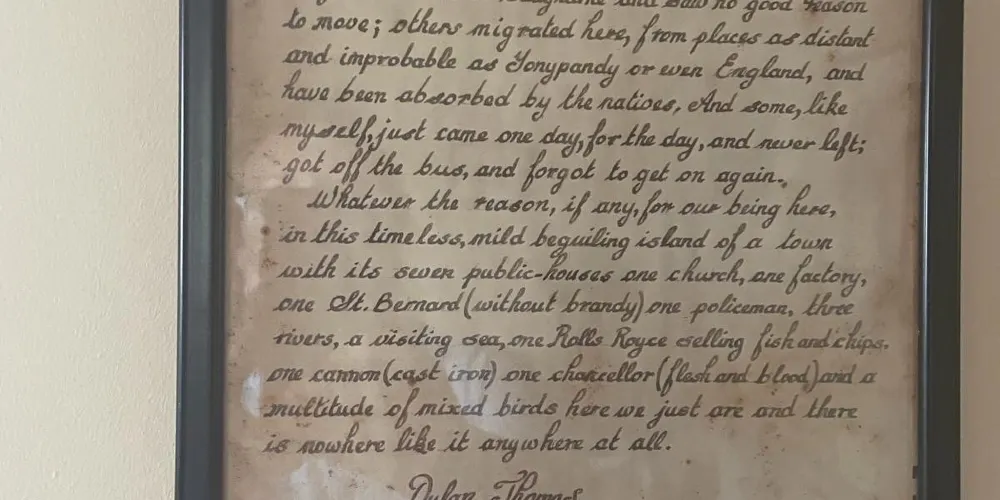 and saw no good reason
to move; others migrated here, from places as distant
and improbable as Tonypandy or even England, and
have been absorbed by the natives. And some, like
myself, just came one day, for the day, and never left;
got off the bus, and forgot to get on again.
Whatever the reason, if any, for our being here,
in this timeless, mild beguiling island of a town
with its seven public-houses one church, one factory,
one St. Bernard (without brandy) one policeman, three
rivers, a visiting sea, one Rolls Royce selling fish and chips.
one cannon (cast iron) one chancellor (flesh and blood) and a
multitude of mixed birds here we just are and there
is nowhere like it anywhere at all.
Dylan Thomas